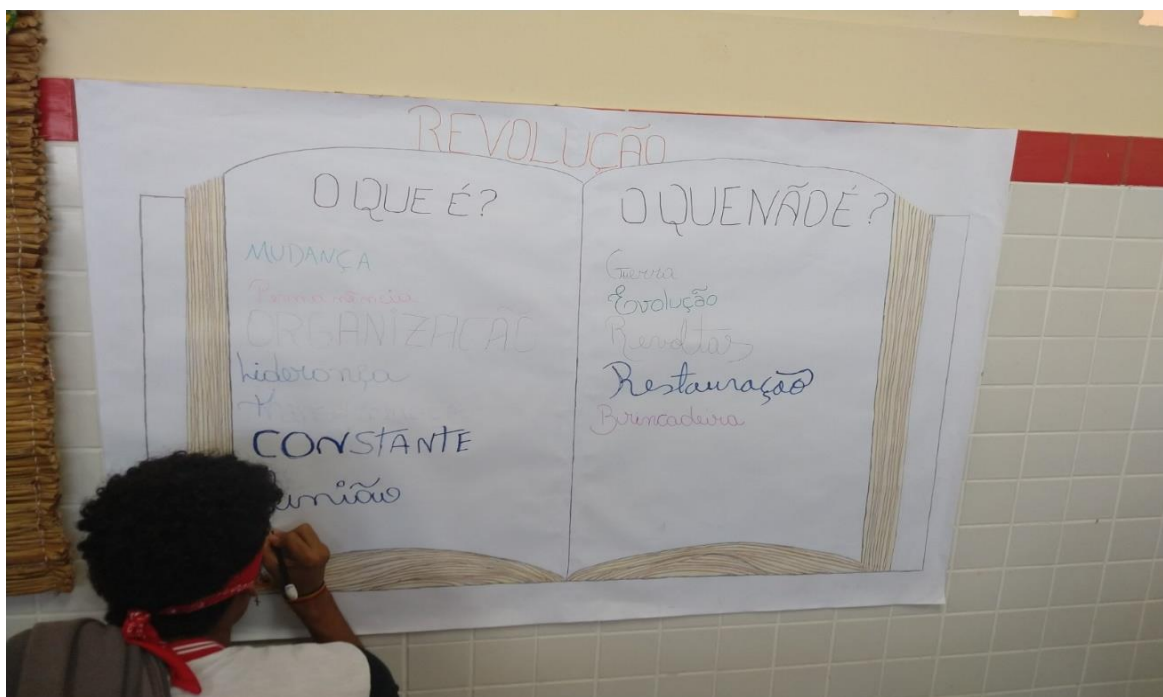 REVOLUÇÃO
O QUE É?
MUDANÇA
Permanência
ORGANIZAÇÃO
Liderança
CONSTANTE
união
O QUE NÃO É?
Guerra
Evolução
Revoltas
Restauração
Brincadeira